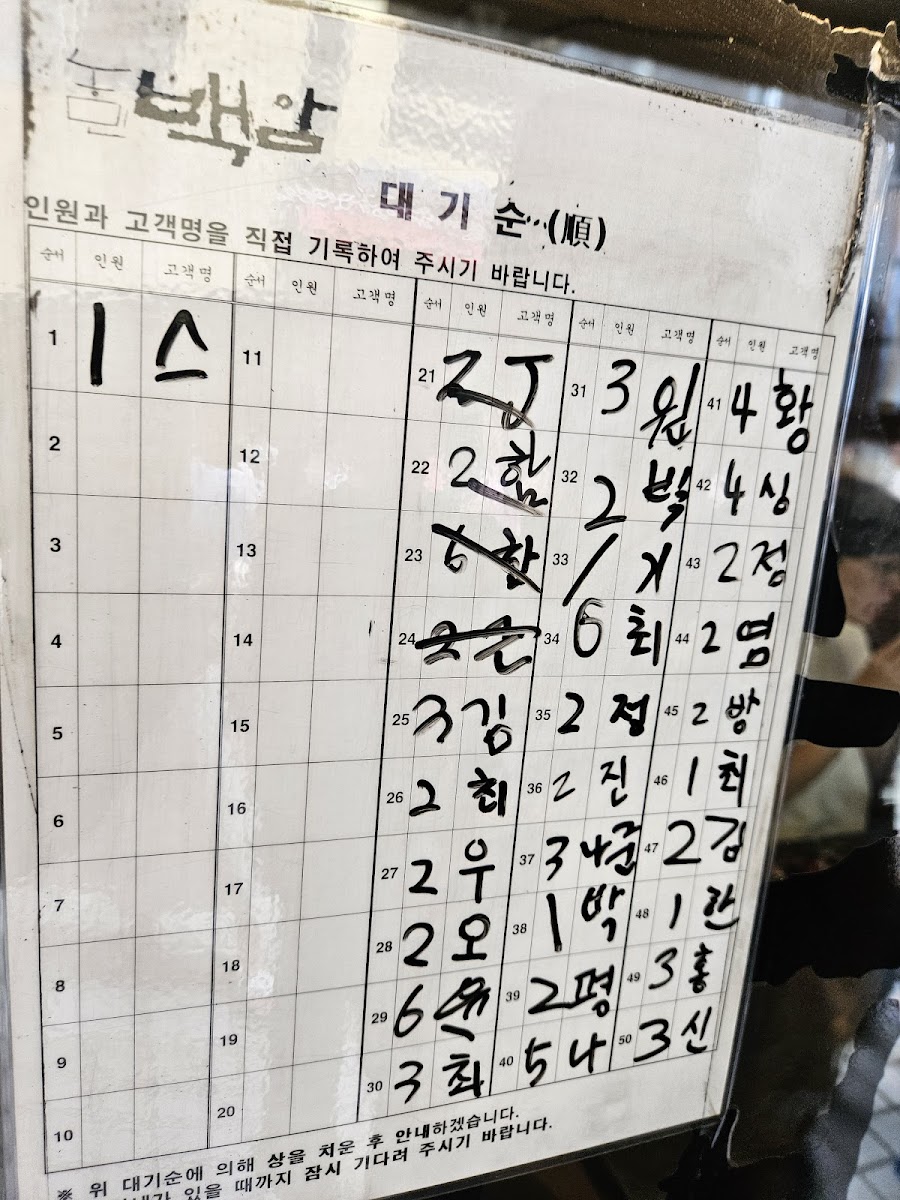 농민 백암
대 기 순 (順)
인원과 고객명을 직접 기록하여 주시기 바랍니다.
순서 인원 고객명 순서 인원 고객명 순서 인원 고객명 순서 인원 고객명 순서 인원 고객명
1 1 스 11 21 2 J 31 3 원 41 4 황
2 12 22 2 함 32 2 박 42 4 심
3 13 23 6 한 33 1 지 43 2 정
4 14 24 2 손 34 6 최 44 2 염
5 15 25 3 김 35 2 정 45 2 방
6 16 26 2 최 36 2 진 46 1 최
7 17 27 2 우 37 3 나균 47 2 김
8 18 28 2 오 38 1 박 48 1 한
9 19 29 6 39 2 평 49 3 홍
10 20 30 3 최 40 5 나 50 3 신
※ 위 대기순에 의해 상을 치운 후 안내하겠습니다.
있을 때까지 잠시 기다려 주시기 바랍니다.